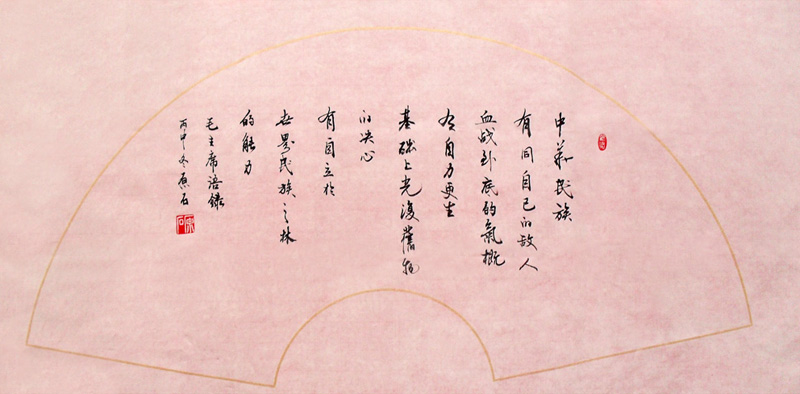 中華民族
有同自己的敌人
血战到底的氣概
有自力更生
基础上光復舊物
的决心
有自立於
世界民族之林
的能力
毛主席語錄
丙申冬石